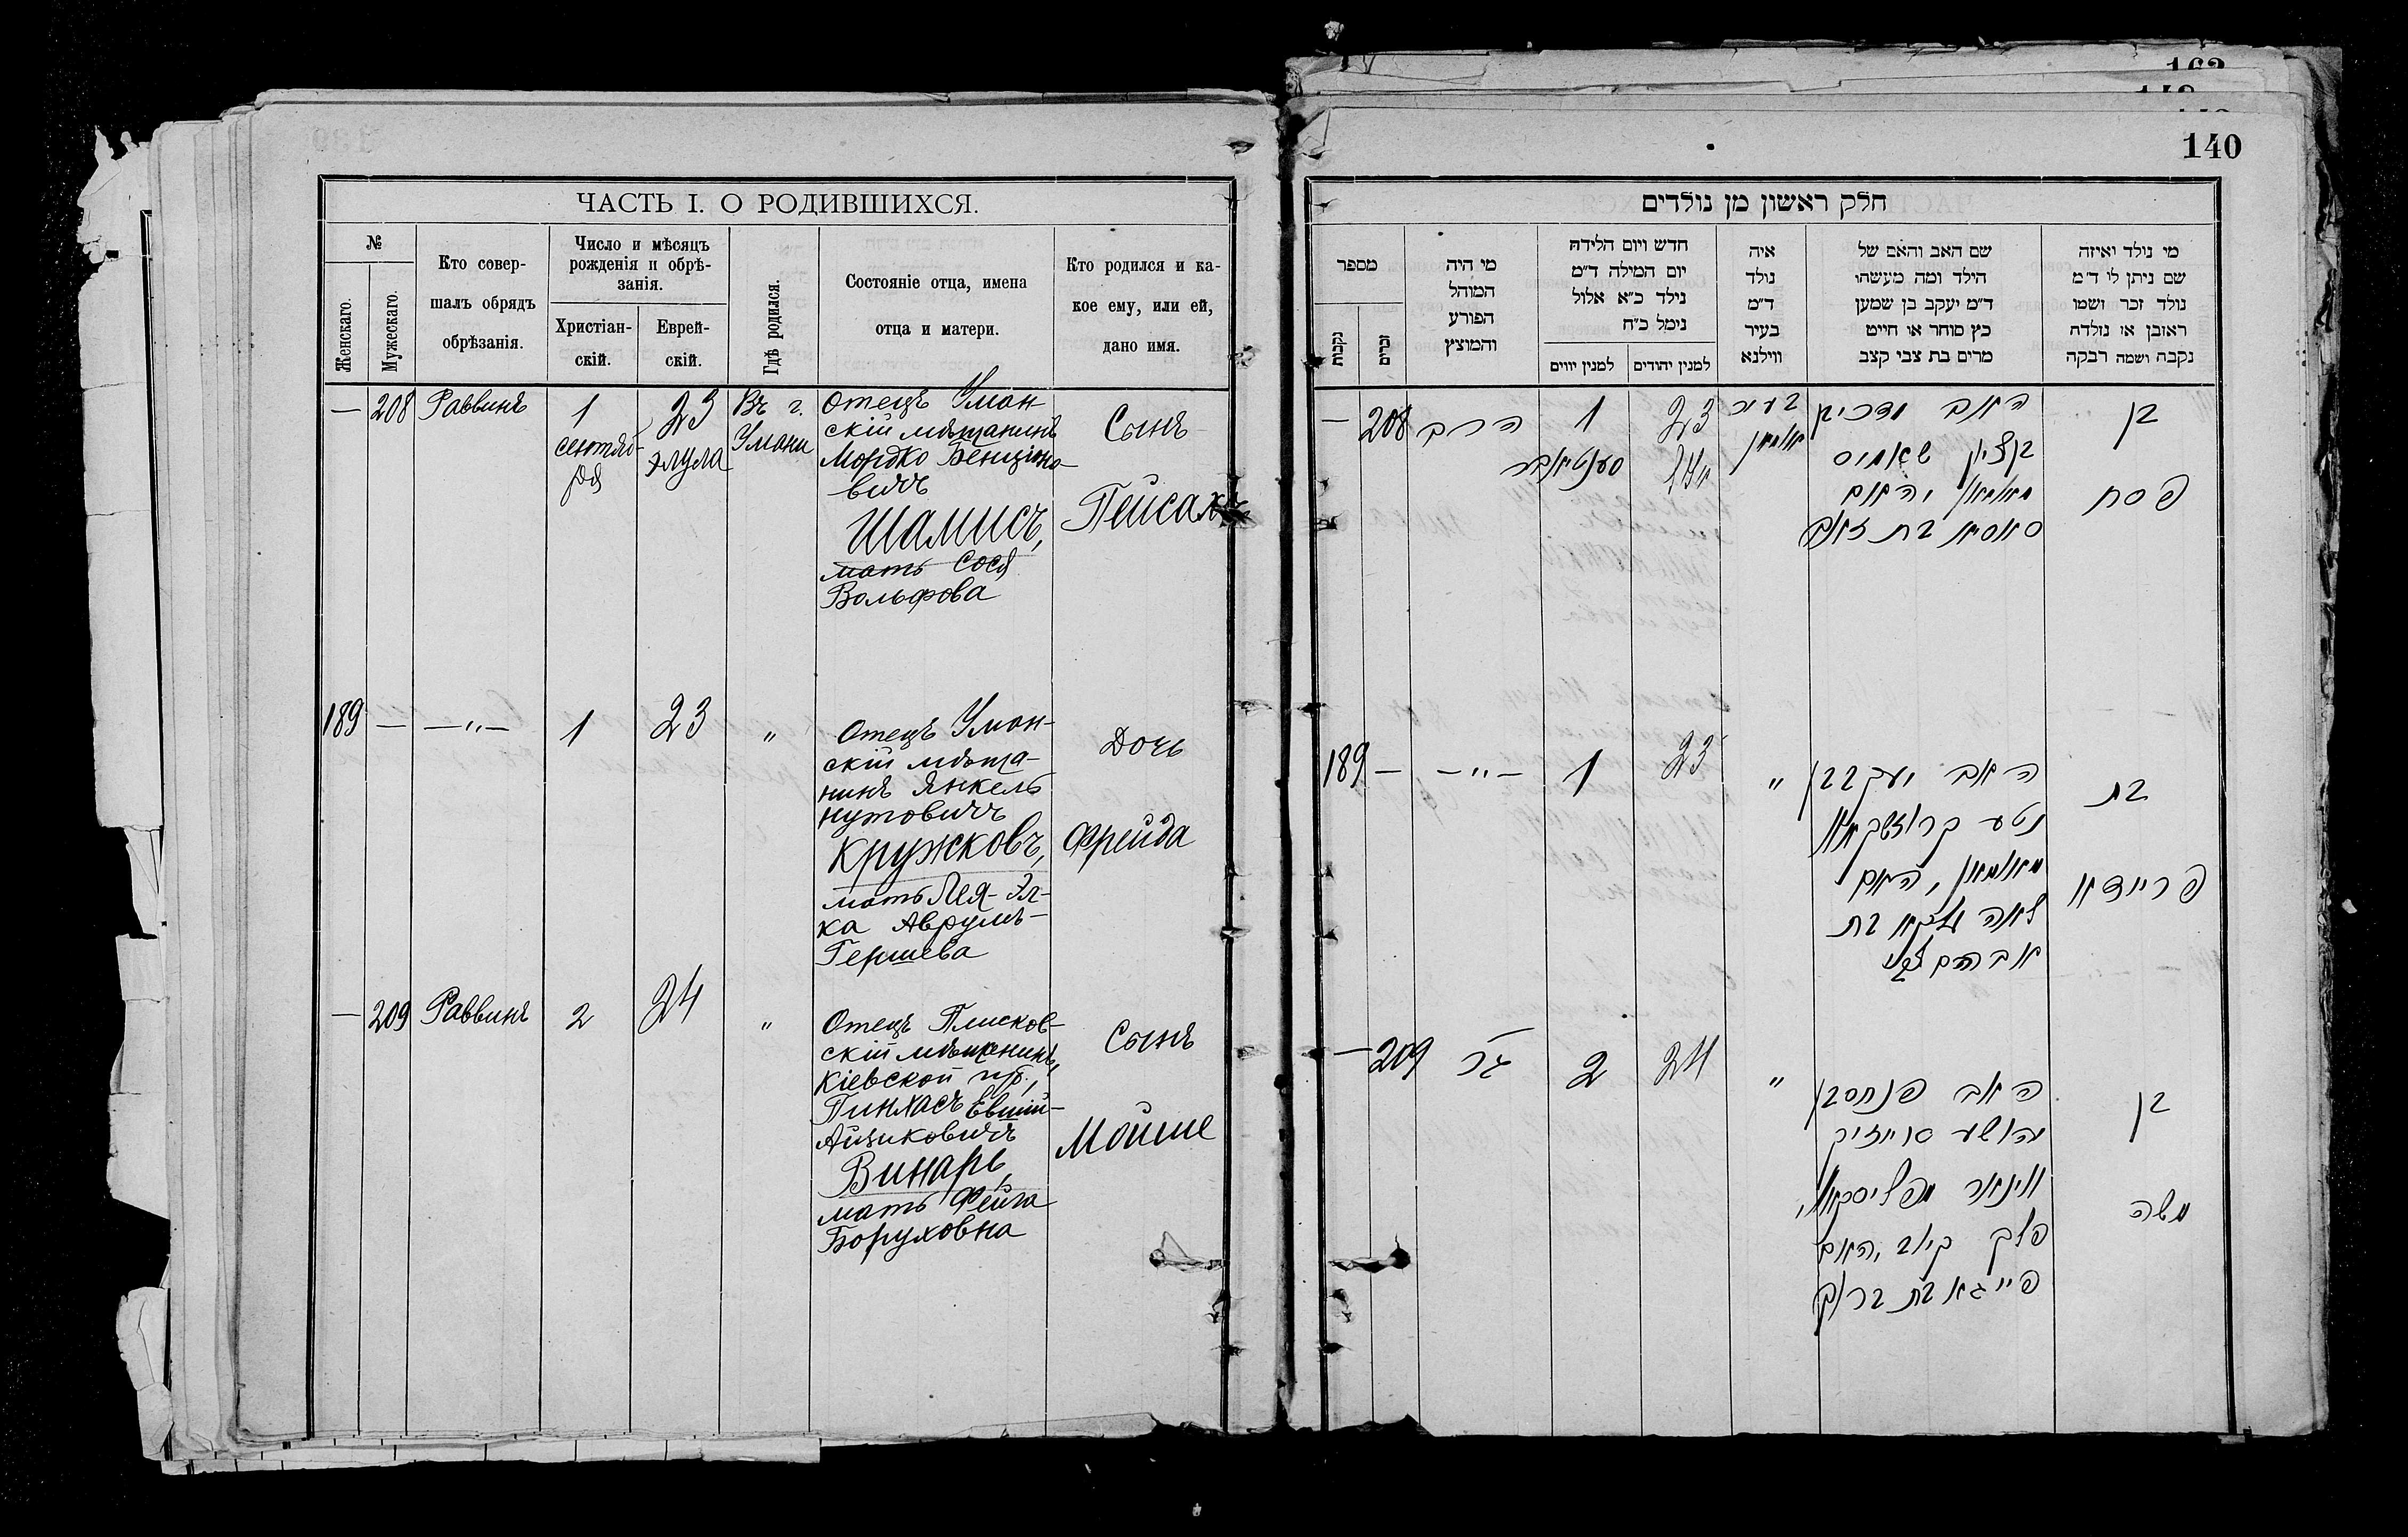 140
ЧАСТЬ I. О РОДИВШИХСЯ.
№
Женскаго.
Мужескаго.
Кто совер-
шалъ обрядъ
обрѣзанія.
Число и мѣсяцъ
рожденія и обрѣ-
занія.
Христіан-
скій.
Еврей-
скій.
Гдѣ родился.
Состояніе отца, имена
отца и матери.
Кто родился и ка-
кое ему, или ей,
дано имя.
—
208
Раввинъ
1
сентяб-
ря
23
элула
Въ г.
Умани
Отецъ Уман-
скій мѣщанинъ
Мордко Бенціоно-
вичъ
Шамисъ,
мать Сося
Вольфова
Сынъ
Пейсахъ
189
—
—"—
1
23
"
Отецъ Уман-
скій мѣща-
нинъ Янкель
Нутовичъ
Кружковъ,
мать Лея-Эл-
ка Аврумъ-
Гершева
Дочь
Фрейда
—
209
Раввинъ
2
24
"
Отецъ Плисков-
скій мѣщанинъ,
Кіевской губ.,
Пинхасъ Евший-
Айзиковичъ
Винарь,
мать Фейга
Боруховна
Сынъ
Мойше
חלק ראשון מן נולדים
מספר
נקבות
זכרים
מי היה
המוהל
הפורע
והמוצץ
חדש ויום הלידה
יום המילה ד״מ
נילד כ״א אלול
נימל כ״ח
למנין יווים
למנין יהודים
איה
נולד
ד״מ
בעיר
ווילנא
שם האב והאם של
הילד ומה מעשהו
ד״מ יעקב בן שמען
כץ סוחר או חייט
מרים בת צבי קצב
מי נולד ואיזה
שם ניתן לו ד״מ
נולד זכר ושמו
ראובן או נולדה
נקבה ושמה רבקה
—
208
הרב
1
סענטיאבר
23
בעיר
אומאן
האב מרדכי
בן ציון שאמיס
מאומאן, האם
סאסיא בת זאב
בן
פסח
189
—
—"—
1
23
"
האב יעקב בן
נטע קרוזשקאוו
מאומאן, האם
לאה עלקא בת
אברהם צבי
בת
פריידא
—
209
2
24
"
האב פנחס בן
יהושע אייזיק
ווינאר מפליסקאוו,
פלך קיוב, האם
פייגא בת ברוך
בן
משה